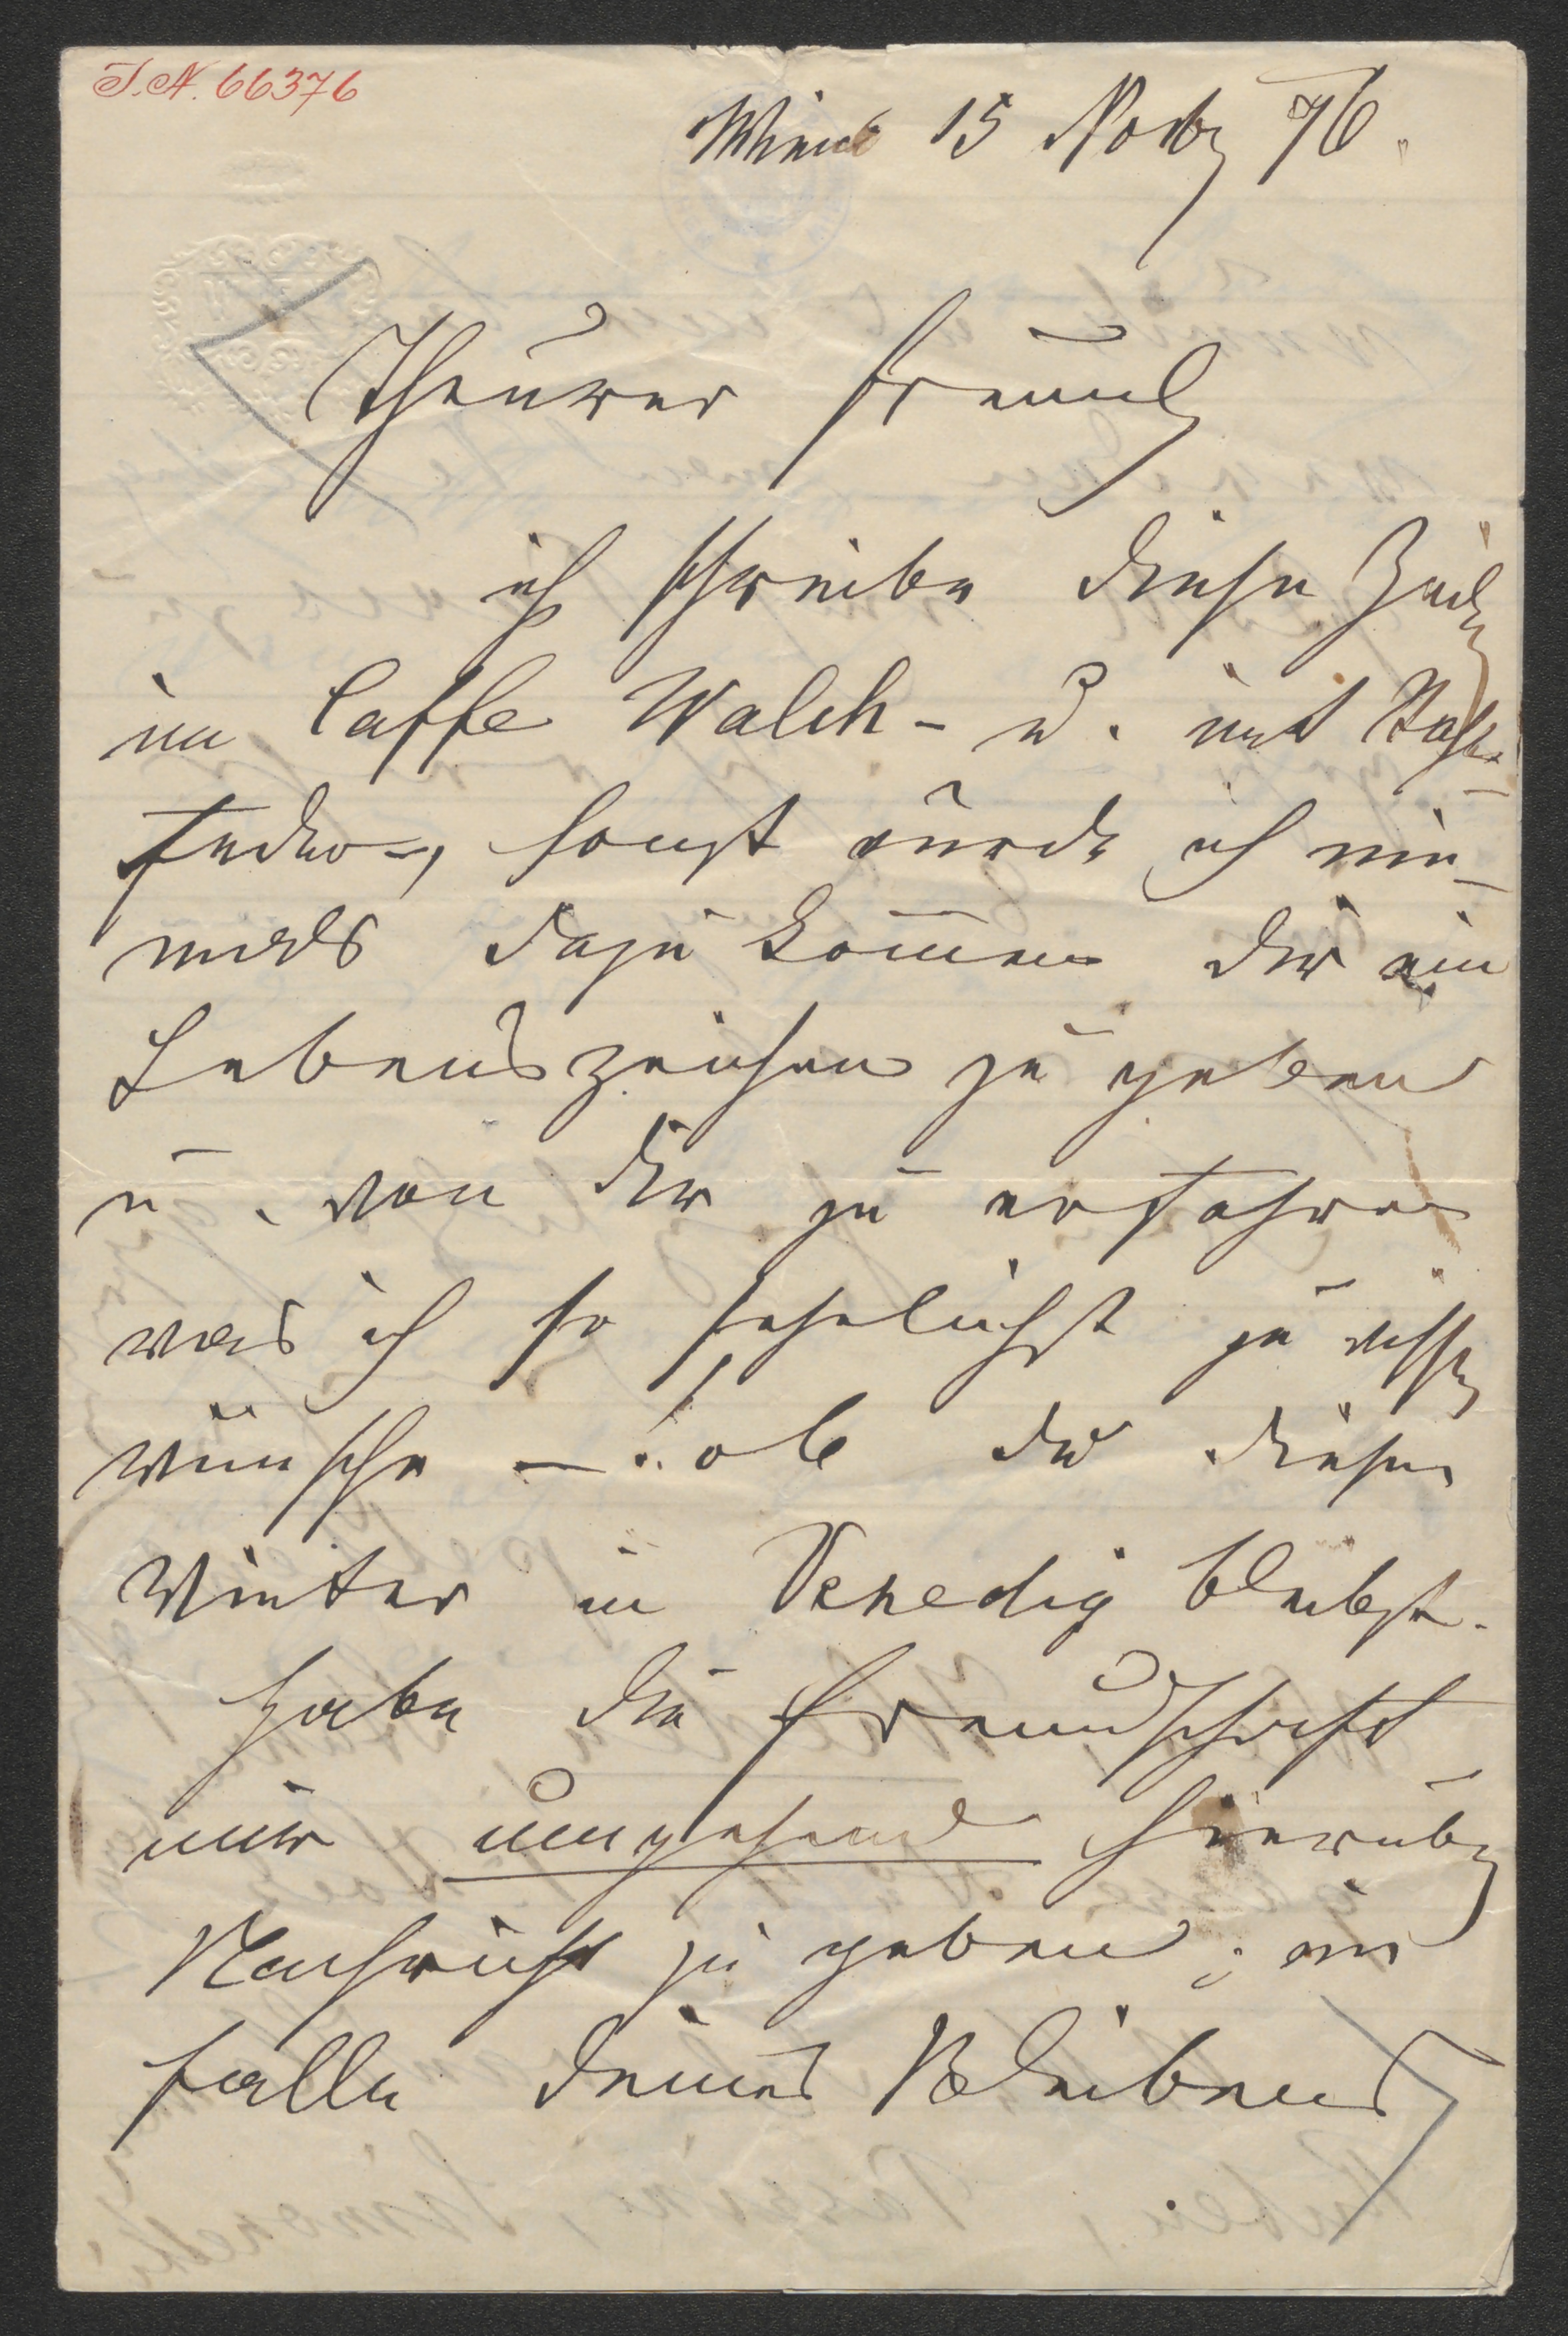 I.N. 66376
Wien 15 Novbr 76.
Theurer Freund
ich schreibe diese Zeilen
im Caffe Walch - u. mit
feder -, sonst würde ich nie-
mals dazu kommen dir ein
Lebenszeichen zu geben
u. von dir zu erfahren
was ich so sehnlichst zu wissen
wünsche - : ob du diesen
Winter in Venedig bleibst.
habe die Freundschaft
mir umgehend hierüber
Nachricht zu geben; im
falle deines Bleibens